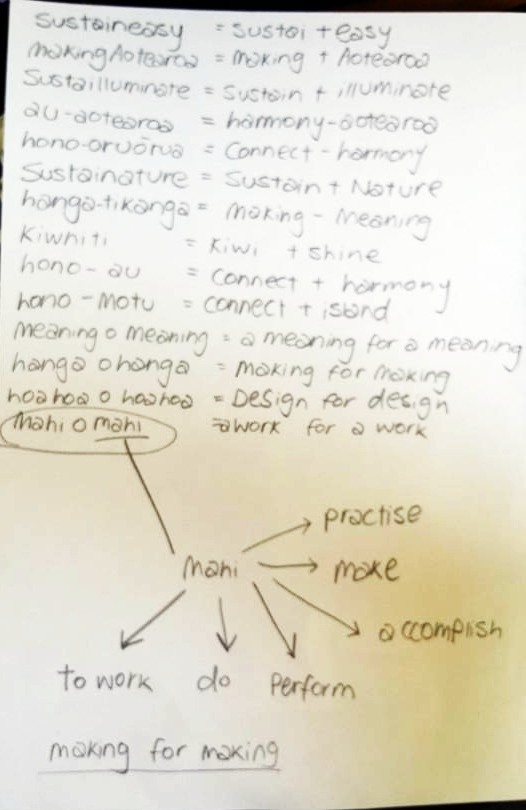 Sustaineasy = Sustai + easy
making Aotearoa = making + Aotearoa
Sustailluminate = Sustain + illuminate
au-aotearoa = harmony-aotearoa
hono-oruōrua = Connect - harmony
Sustainature = Sustain + Nature
hanga-tikanga = making - Meaning
Kiwhiti = Kiwi + shine
hono - au = connect + harmony
hono - Motu = connect + island
meaning o meaning = a meaning for a meaning
hanga o hanga = making for making
hoahoa o hoahoa = Design for design
Mahi o mahi = a work for a work
Mahi
practise
make
accomplish
to work do Perform
making for making